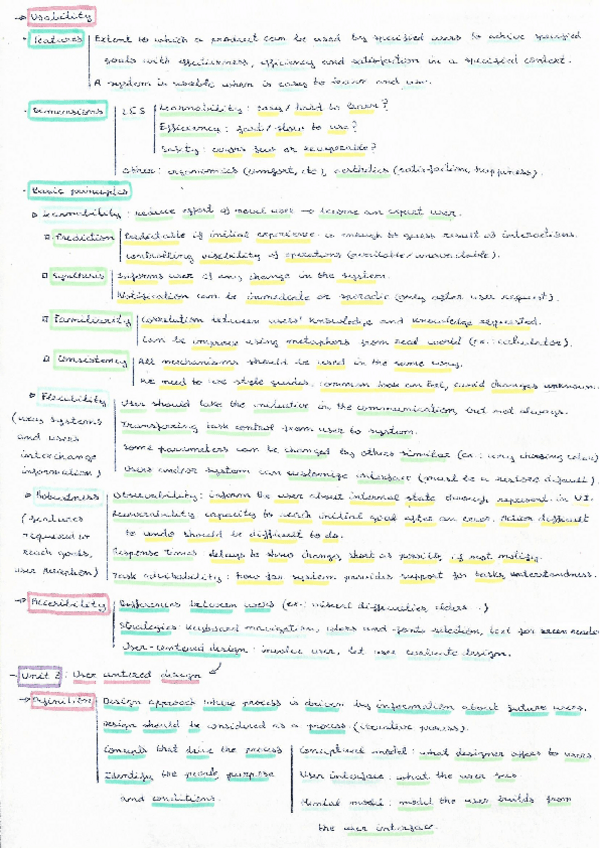 → Usability
· Features | Extent to which a product can be used by specified users to achieve specified
goals with effectiveness, efficiency and satisfaction in a specified context.
A system is usable when is easy to learn and use.
· Dimensions | LES | Learnability: easy/hard to learn?
Efficiency: fast/slow to use?
Safety: errors few or recoverable?
Other: ergonomics (comfort, etc), aesthetics (satisfaction, happiness).
· Basic principles
Learnability: reduce effort of novel work → become an expert user.
Prediction | Predictable if initial experience is enough to guess result of interaction.
Controlling visibility of operations (available/unavailable).
Synthesis | Informs user of any change in the system.
Notification can be immediate or sporadic (only after user request).
Familiarity | Correlation between users' knowledge and knowledge requested.
Can be improve using metaphors from real world (ex.: calculator).
Consistency | All mechanisms should be used in the same way.
We need to use style guides, common look and feel, avoid changes unknown.
Flexibility | User should take the initiative in the communication, but not always.
(ways systems | Transferring task control from user to system.
and users | Some parameters can be changed by others similar (ex.: way choosing color)
interchange | Users and/or system can customize interface (must be a restore default).
information)
Robustness | Observability: inform the user about internal state through represent. in UI.
(features | Recoverability capacity to reach initial goal after an error. Action difficult
required to | to undo should be difficult to do.
reach goals, | Response Times: delays to show changes, short as possible, if not notify.
user perception) | Task adaptability: how far system provides support for tasks understandness.
→ Accesibility | Differences between users (ex.: visual difficulties, elders..)
Strategies: keyboard navigation, colors and fonts selection, text for screen reader
User-centered design: involve user, let user evaluate design.
- Unit 2: User centered design
→ Definition | Design approach where process is driven by information about future users.
Design should be considered as a process (iterative process).
Concepts that drive the process | Conceptual model: what designer offers to users
Identify the people, purpose | User interface: what the user sees
and conditions. | Mental model: model the user builds from
the user interface.